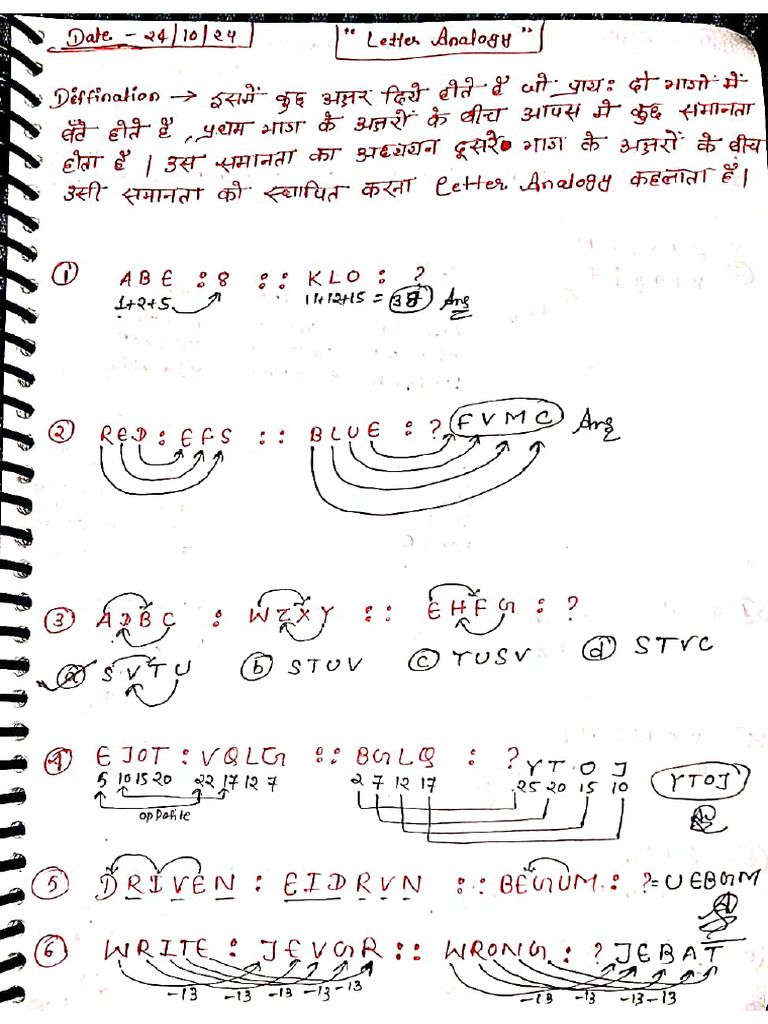 Date - 24/10/24 "Letter Analogy"
Diffination → इसमें कुछ अक्षर दिये होते हैं जो प्राय: दो भागो में
बँटे होते है, प्रथम भाग के अक्षरों के बीच आपस में कुछ समानता
होता है। उस समानता का अध्ययन दूसरे भाग के अक्षरों के बीच
उसी समानता को स्थापित करना Letter Analogy कहलाता है।
① ABE : 8 :: KLO : ?
1+2+5 11+12+15 = 38 Ans
② RED : EFS :: BLUE : ? FVMC Ans
③ ADBC : WZXY :: EHFG : ?
ⓐ SVTU ⓑ STUV ⓒ TUSV ⓓ STVC
④ EJOT : VQLG :: BGLQ : ? YTOJ
5 10 15 20 22 17 12 7 2 7 12 17 25 20 15 10 YTOJ
opposite
⑤ DRIVEN : EIDRVN :: BEGUM : ? = UEBGM
⑥ WRITE : JEVGR :: WRONG : ? JEBAT
-13 -13 -13 -13 -13 -13 -13 -13 -13